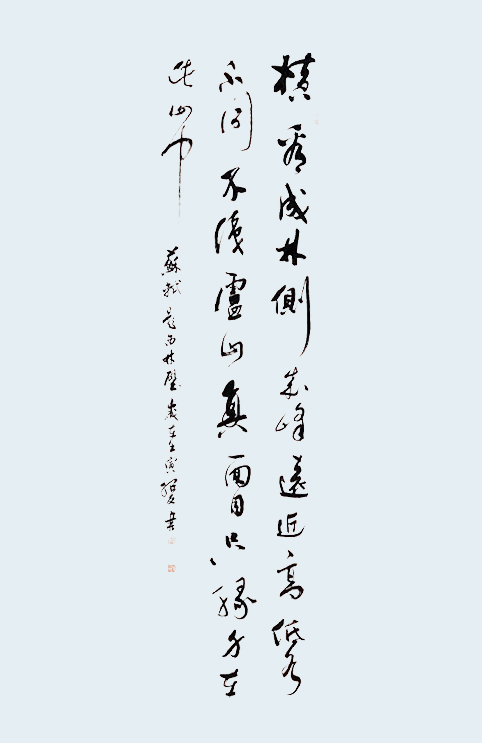 横看成林側成峰遠近高低各
不同不識盧山真面目只緣身在
此山中 蘇軾題西林壁歲在壬寅書